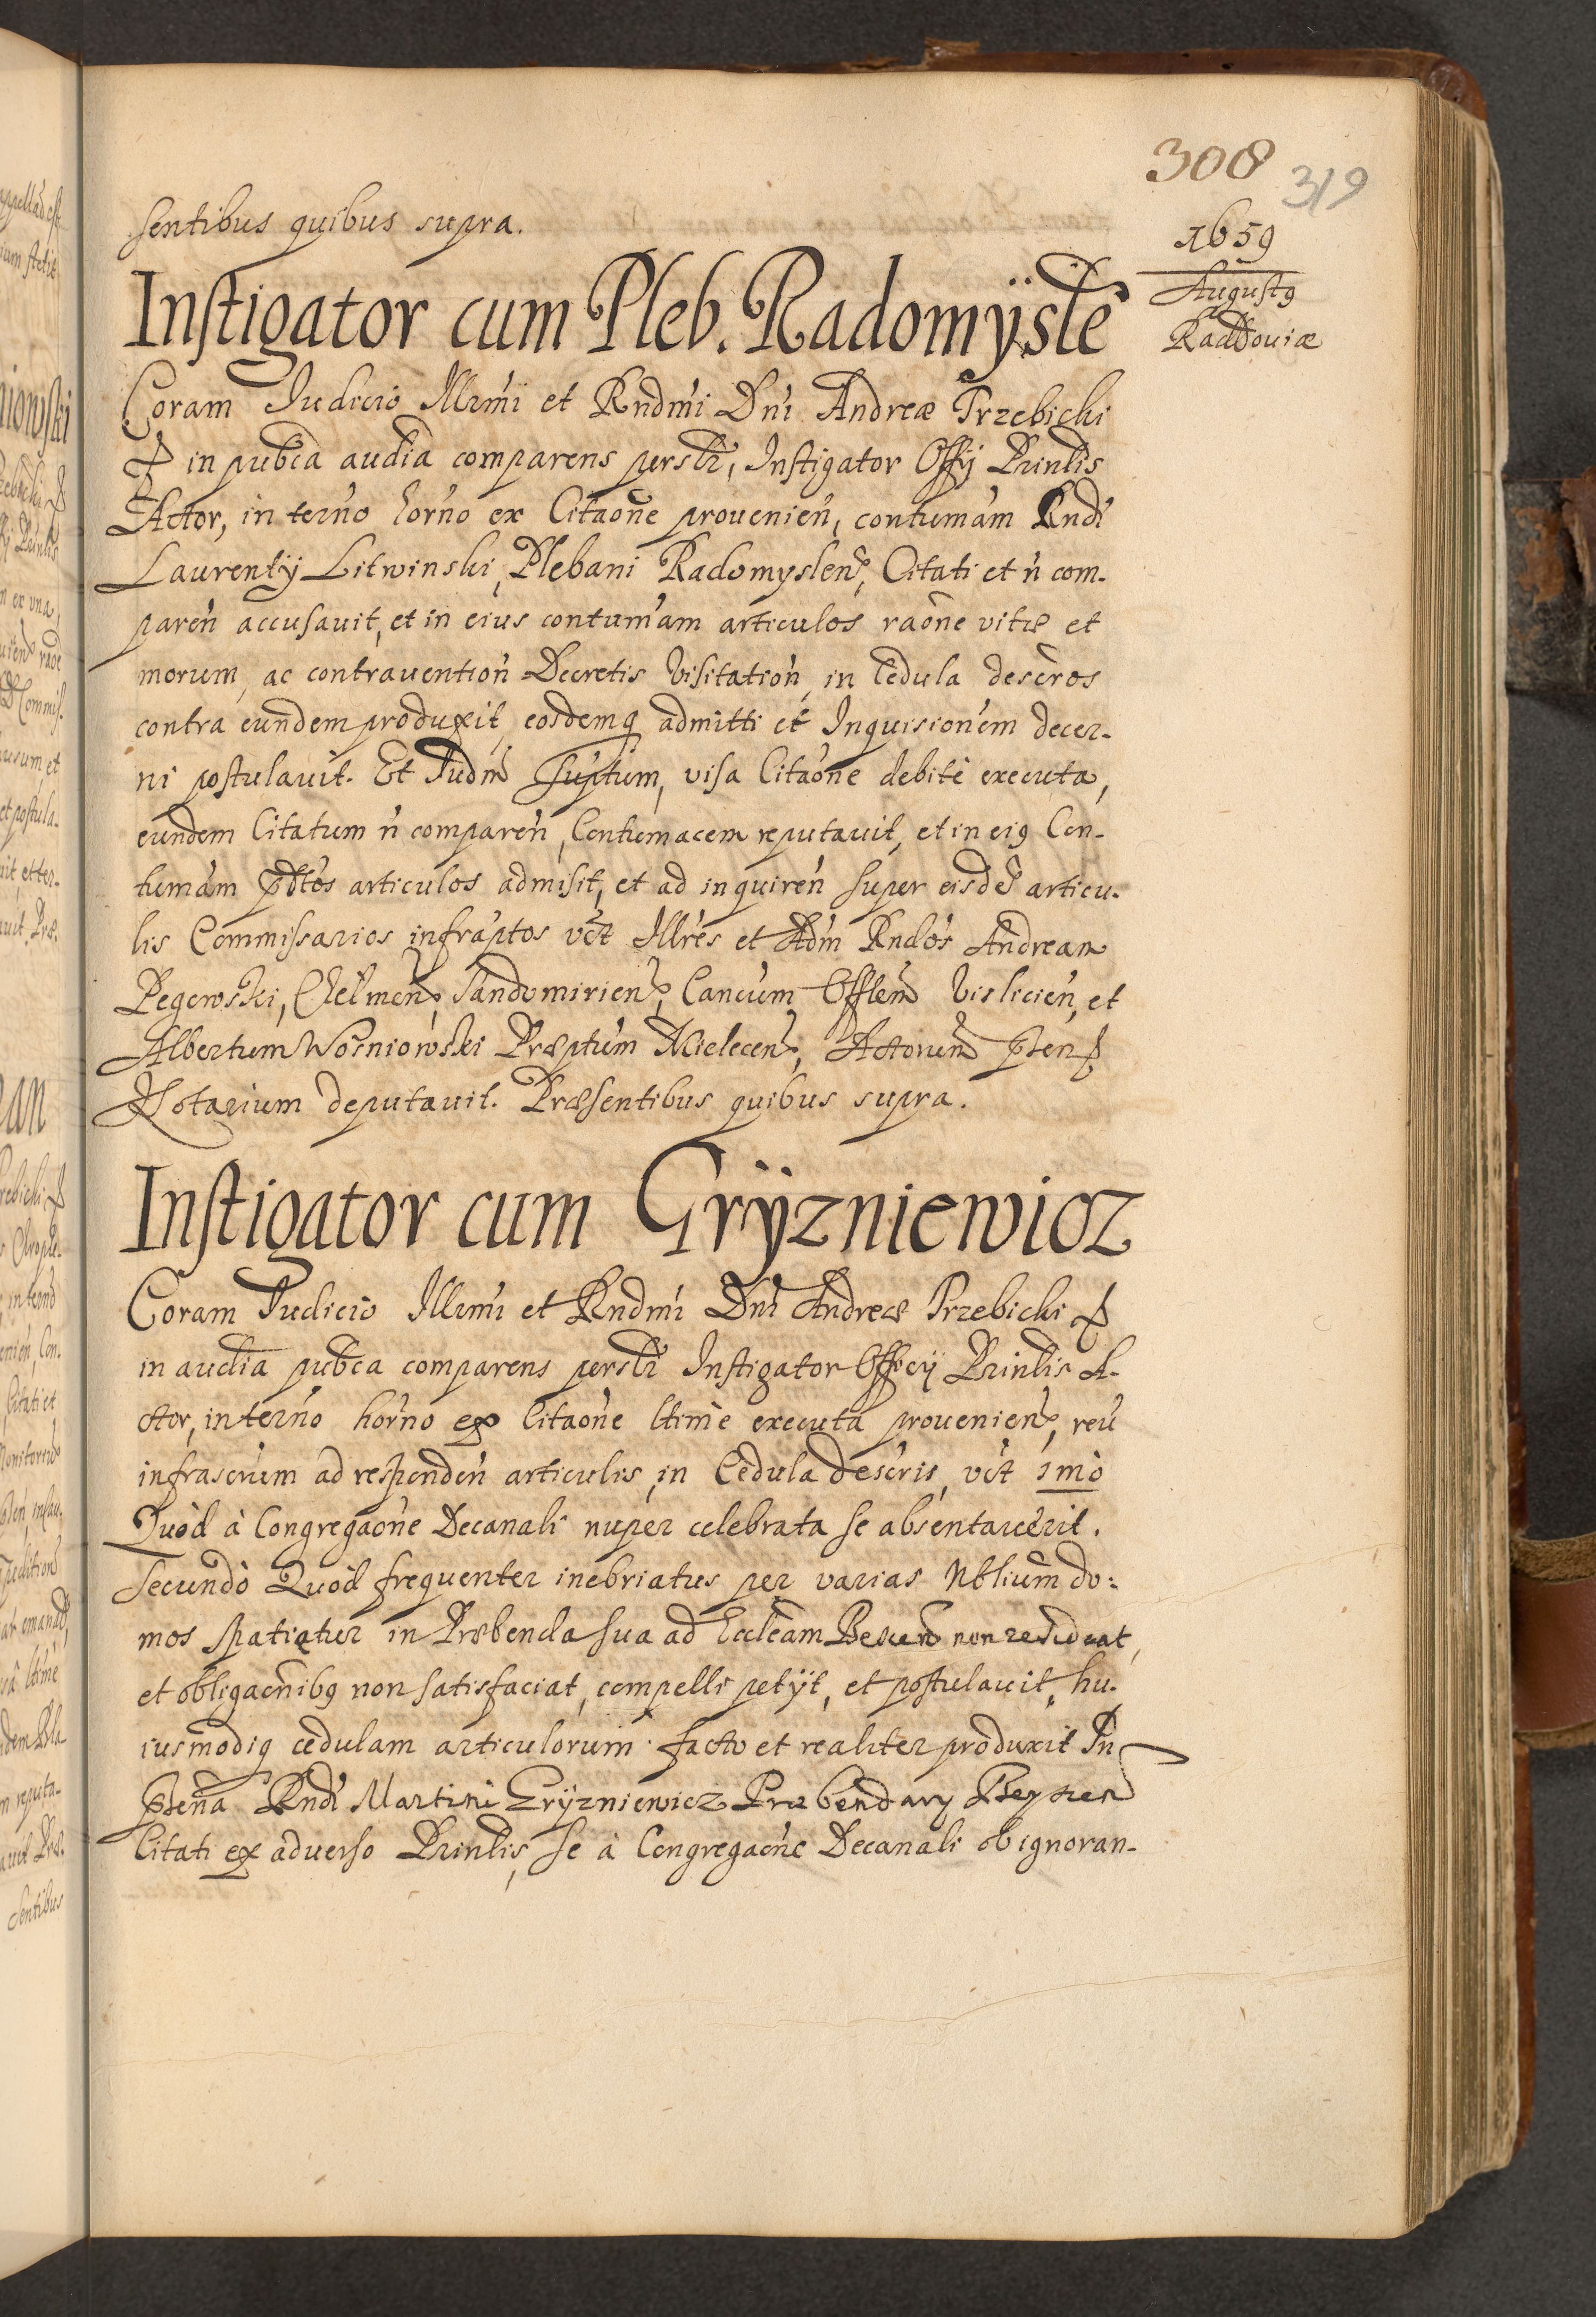 308 319
1659
Augusty
Raddoviæ
sentibus quibus supra.
Instigator cum Pleb. Radomÿsle
Coram Iudicio Illrmi et Rndmi Dni Andreæ Trzebicki
in pubca audia comparens persłr, Instigator Offÿ Prinlis
Actor, in terno horno ex Citaone provenien, contumam Rndi
Laurentÿ Litwinski, Plebani Radomyslen, Citati et n com-
paren accusavit, et in eius contumam articulos raone vitæ et
morum, ac contravention Decretis Visitation, in Cedula descros
contra eundem produxit, eosdemq admitti et Inquisionem decer-
ni postulavit. Et Iudm suptum, visa Citaone debitè executa,
eundem Citatum n comparen, Contumacem reputavit, et in eig Con-
tumam pdtos articulos admisit, et ad inquiren super eisde articu-
lis Commissarios infraptos vct Illres et Adm Rndos Andream
Pegowski, Chelmen, Sandomirien, Cancum Offlem Vislicien, et
Albertum Wosniowski Præptum Mielecen, Actorum
Notarium deputavit. Præsentibus quibus supra.
Instigator cum Grÿzniewicz
Coram Iudicio Illrmi et Rndmi Dni Andreæ Trzebicki
in audia pubca comparens persłr Instigator Officÿ Prinlis A-
ctor, in terno horno ex Citaone ltime executa provenien, reu
infrascrum ad responden articulis, in Cedula descris, vct 1mò
Quòd à Congregaone Decanali nuper celebrata se absentaverit.
Secundò Quòd frequenter inebriatus per varias Nblium do:
mos spatiatur in Præbenda sua ad Eccleam non resideat,
et obligaonibg non satisfaciat, compelli petÿt, et postulavit, hu-
iusmodiq cedulam articulorum facto et realiter produxit In
pſena Rndi Martini Grÿzniewicz Præbendary
Citati ex adverso Prinlis, se à Congregaone Decanali ob ignoran-